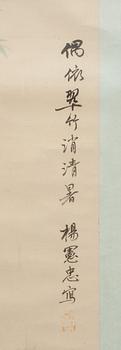 偶依翠竹消清暑 楊憲忠寫